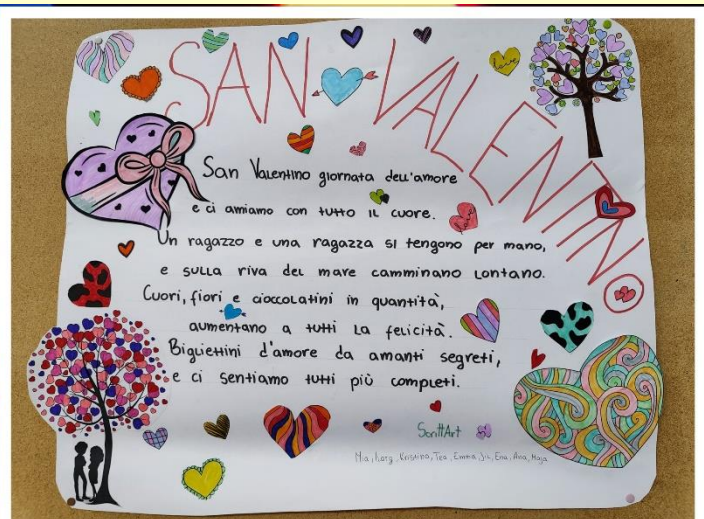 SAN VALENTINO
love
San Valentino giornata dell'amore
e ci amiamo con tutto il cuore.
Un ragazzo e una ragazza si tengono per mano,
e sulla riva del mare camminano lontano.
Cuori, fiori e cioccolatini in quantità,
aumentano a tutti la felicità.
Bigliettini d'amore da amanti segreti,
e ci sentiamo tutti più completi.
Mia, Kristina, Tea, Emma, Ena, Ana, Maja